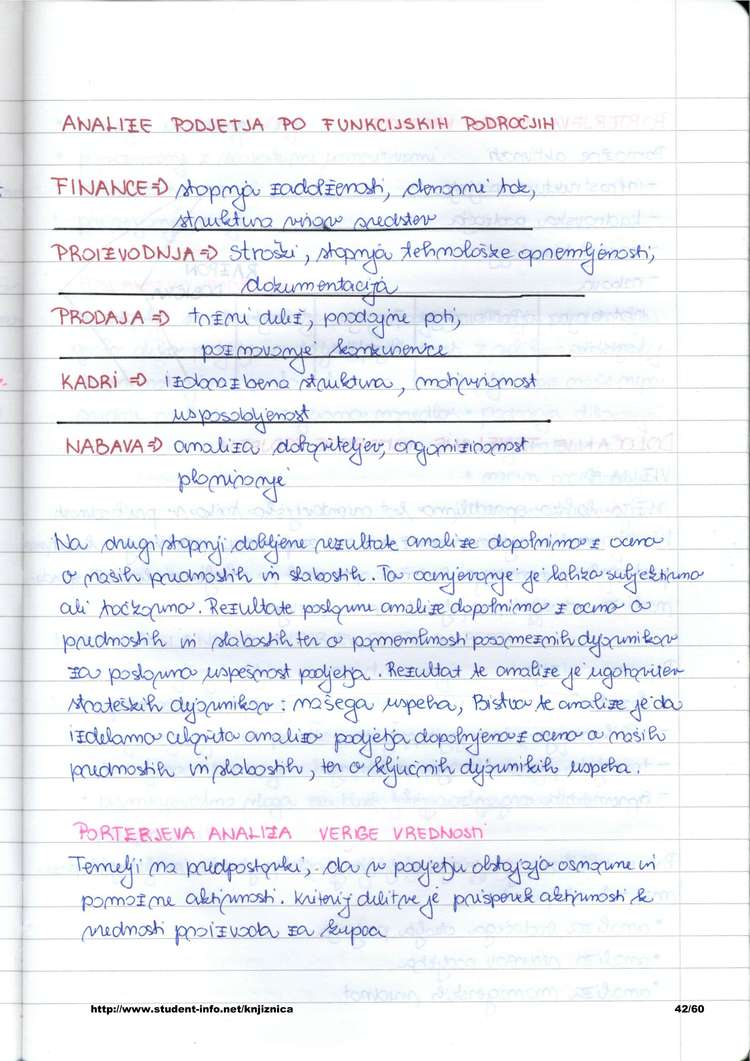 ANALIZE PODJETJA PO FUNKCIJSKIH PODROČJIH
FINANCE => stopnja zadolženosti, denarni tok,
struktura virov sredstev
PROIZVODNJA => stroški, stopnja tehnološke opremljenosti,
dokumentacija
PRODAJA => tržni delež, prodajne poti,
poznavanje konkurence
KADRI => izobrazbena struktura, motiviranost
usposobljenost
NABAVA => analiza dobaviteljev, organiziranost
planiranje
Na drugi stopnji dobljene rezultate analize dopolnimo z oceno
o naših prednostih in slabostih. To ocenjevanje je lahko subjektivno
ali točkovno. Rezultate poslovne analize dopolnimo z oceno o
prednostih in slabostih ter o pomembnosti posameznih dejavnikov
za poslovno uspešnost podjetja. Rezultat te analize je ugotovitev
strateških dejavnikov: našega uspeha, Bistvo te analize je da
izdelamo celovito analizo podjetja dopolnjeno z oceno o naših
prednostih in slabostih, ter o ključnih dejavnikih uspeha.
PORTERJEVA ANALIZA VERIGE VREDNOSTI
Temelji na predpostavki, da v podjetju obstajajo osnovne in
pomožne aktivnosti. Kriterij delitve je prispevek aktivnosti k
vrednosti proizvoda za kupca
http://www.student-info.net/knjiznica
42/60